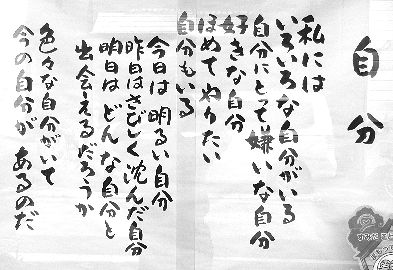 自分
私には
いろいろな自分がいる
自分にとって嫌いな自分
好きな自分
ほめてやりたい
自分もいる
今日は明るい自分
昨日はさびしく沈んだ自分
明日はどんな自分と
出会えるだろうか
色々な自分がいて
今の自分があるのだ